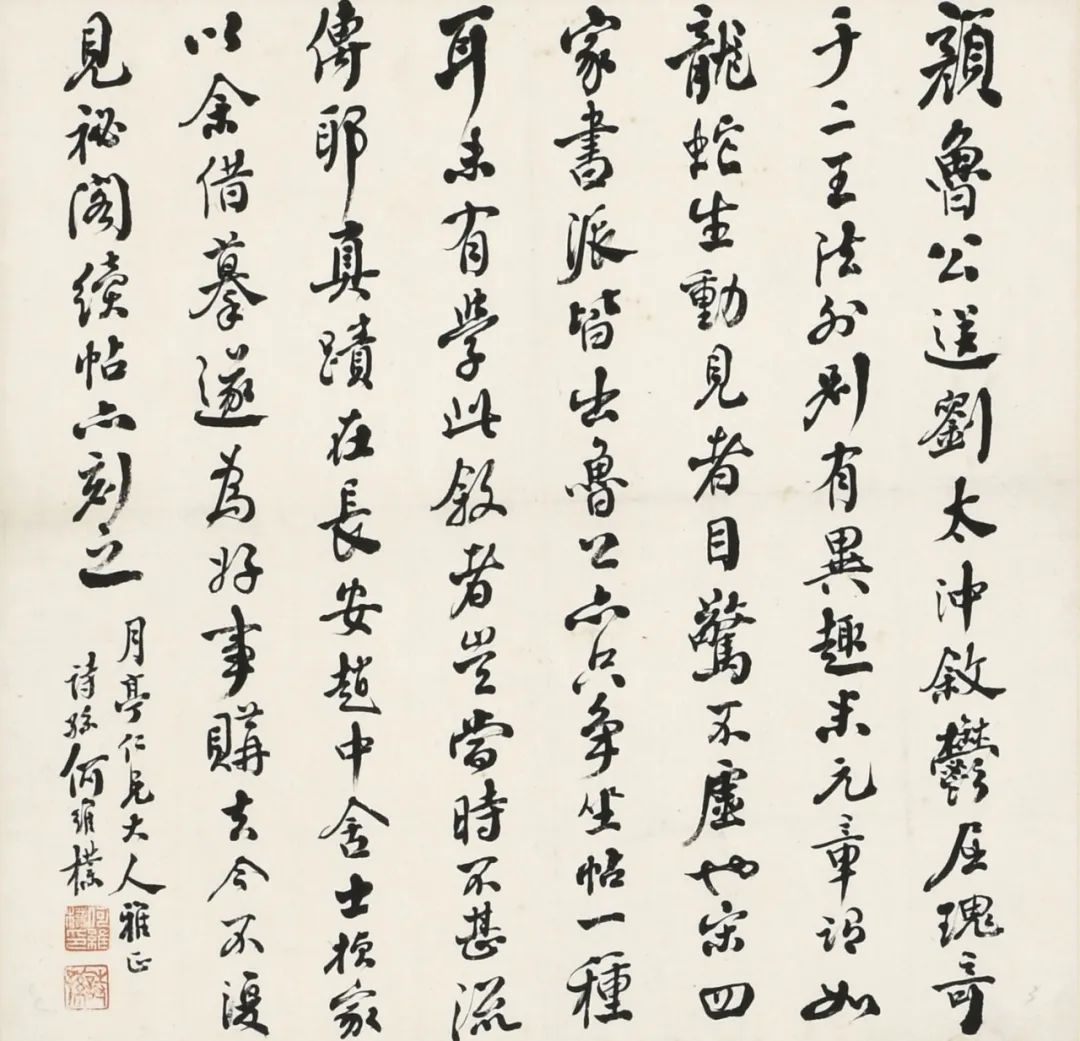 顔魯公送劉太沖敘鬱屈瑰奇
于二王法外別有異趣米元章謂如
龍蛇生動見者目驚不虛也宋四
家書派皆出魯公亦只爭坐帖一種
耳未有學此敘者豈當時不甚流
傳耶真蹟在長安趙中舍士楨家
以余借摹遂為好事購去今不復
見祕閣續帖亦刻之
月亭仁兄大人雅正
詩孫何維樸
何維樸印
詩孫